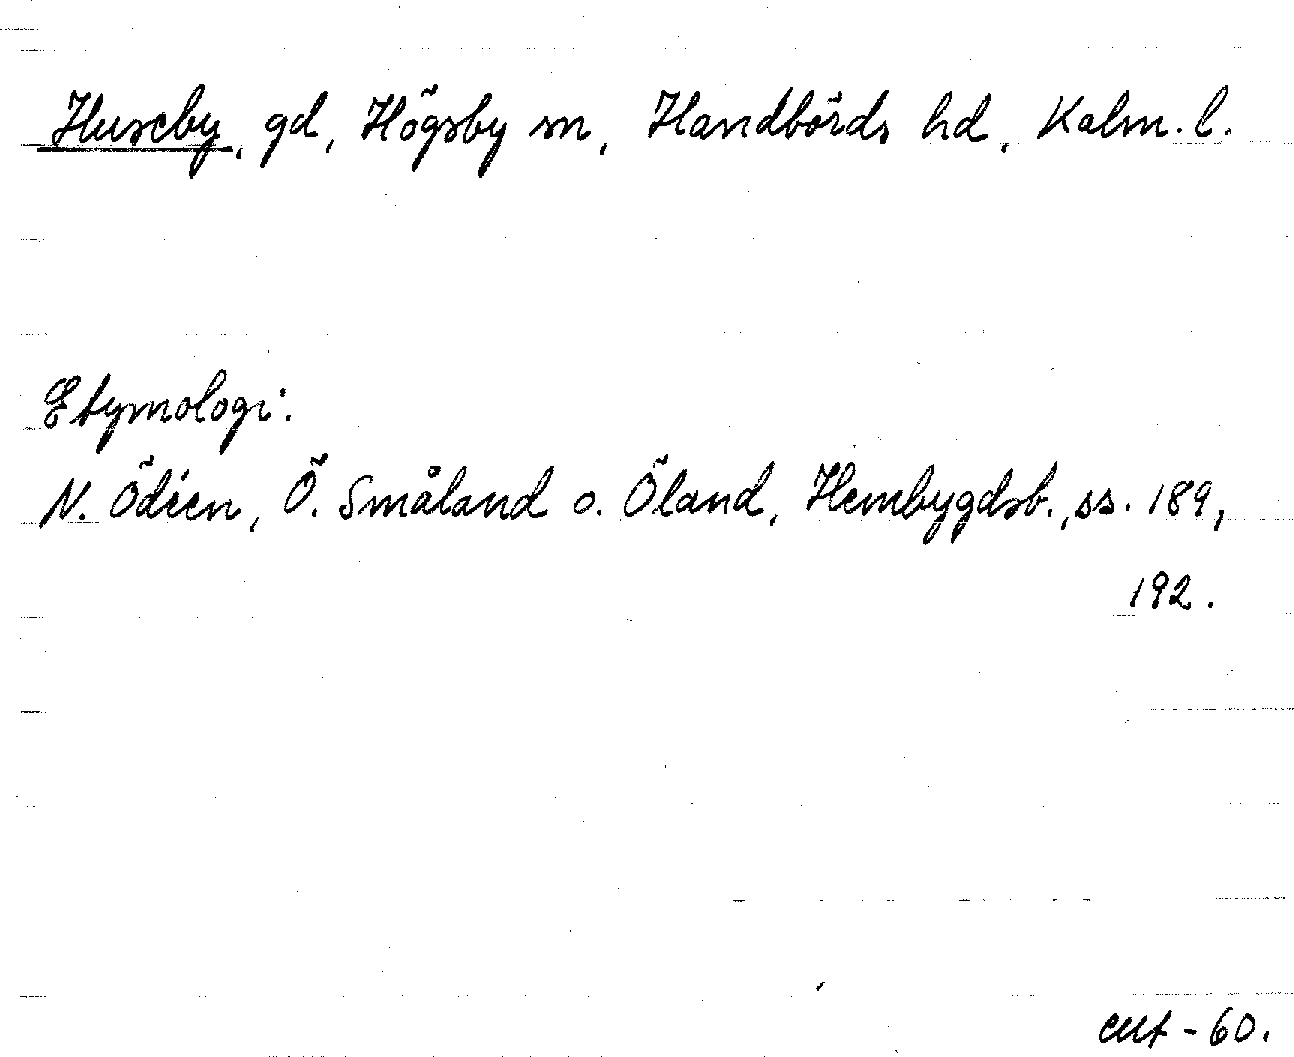 Huseby, gd, Högsby sn, Handbörds hd, Kalm. l.
Etymologi:
N. Ödéen, Ö. Småland o. Öland, Hembygdsb., ss. 189,
192.
cut -60.